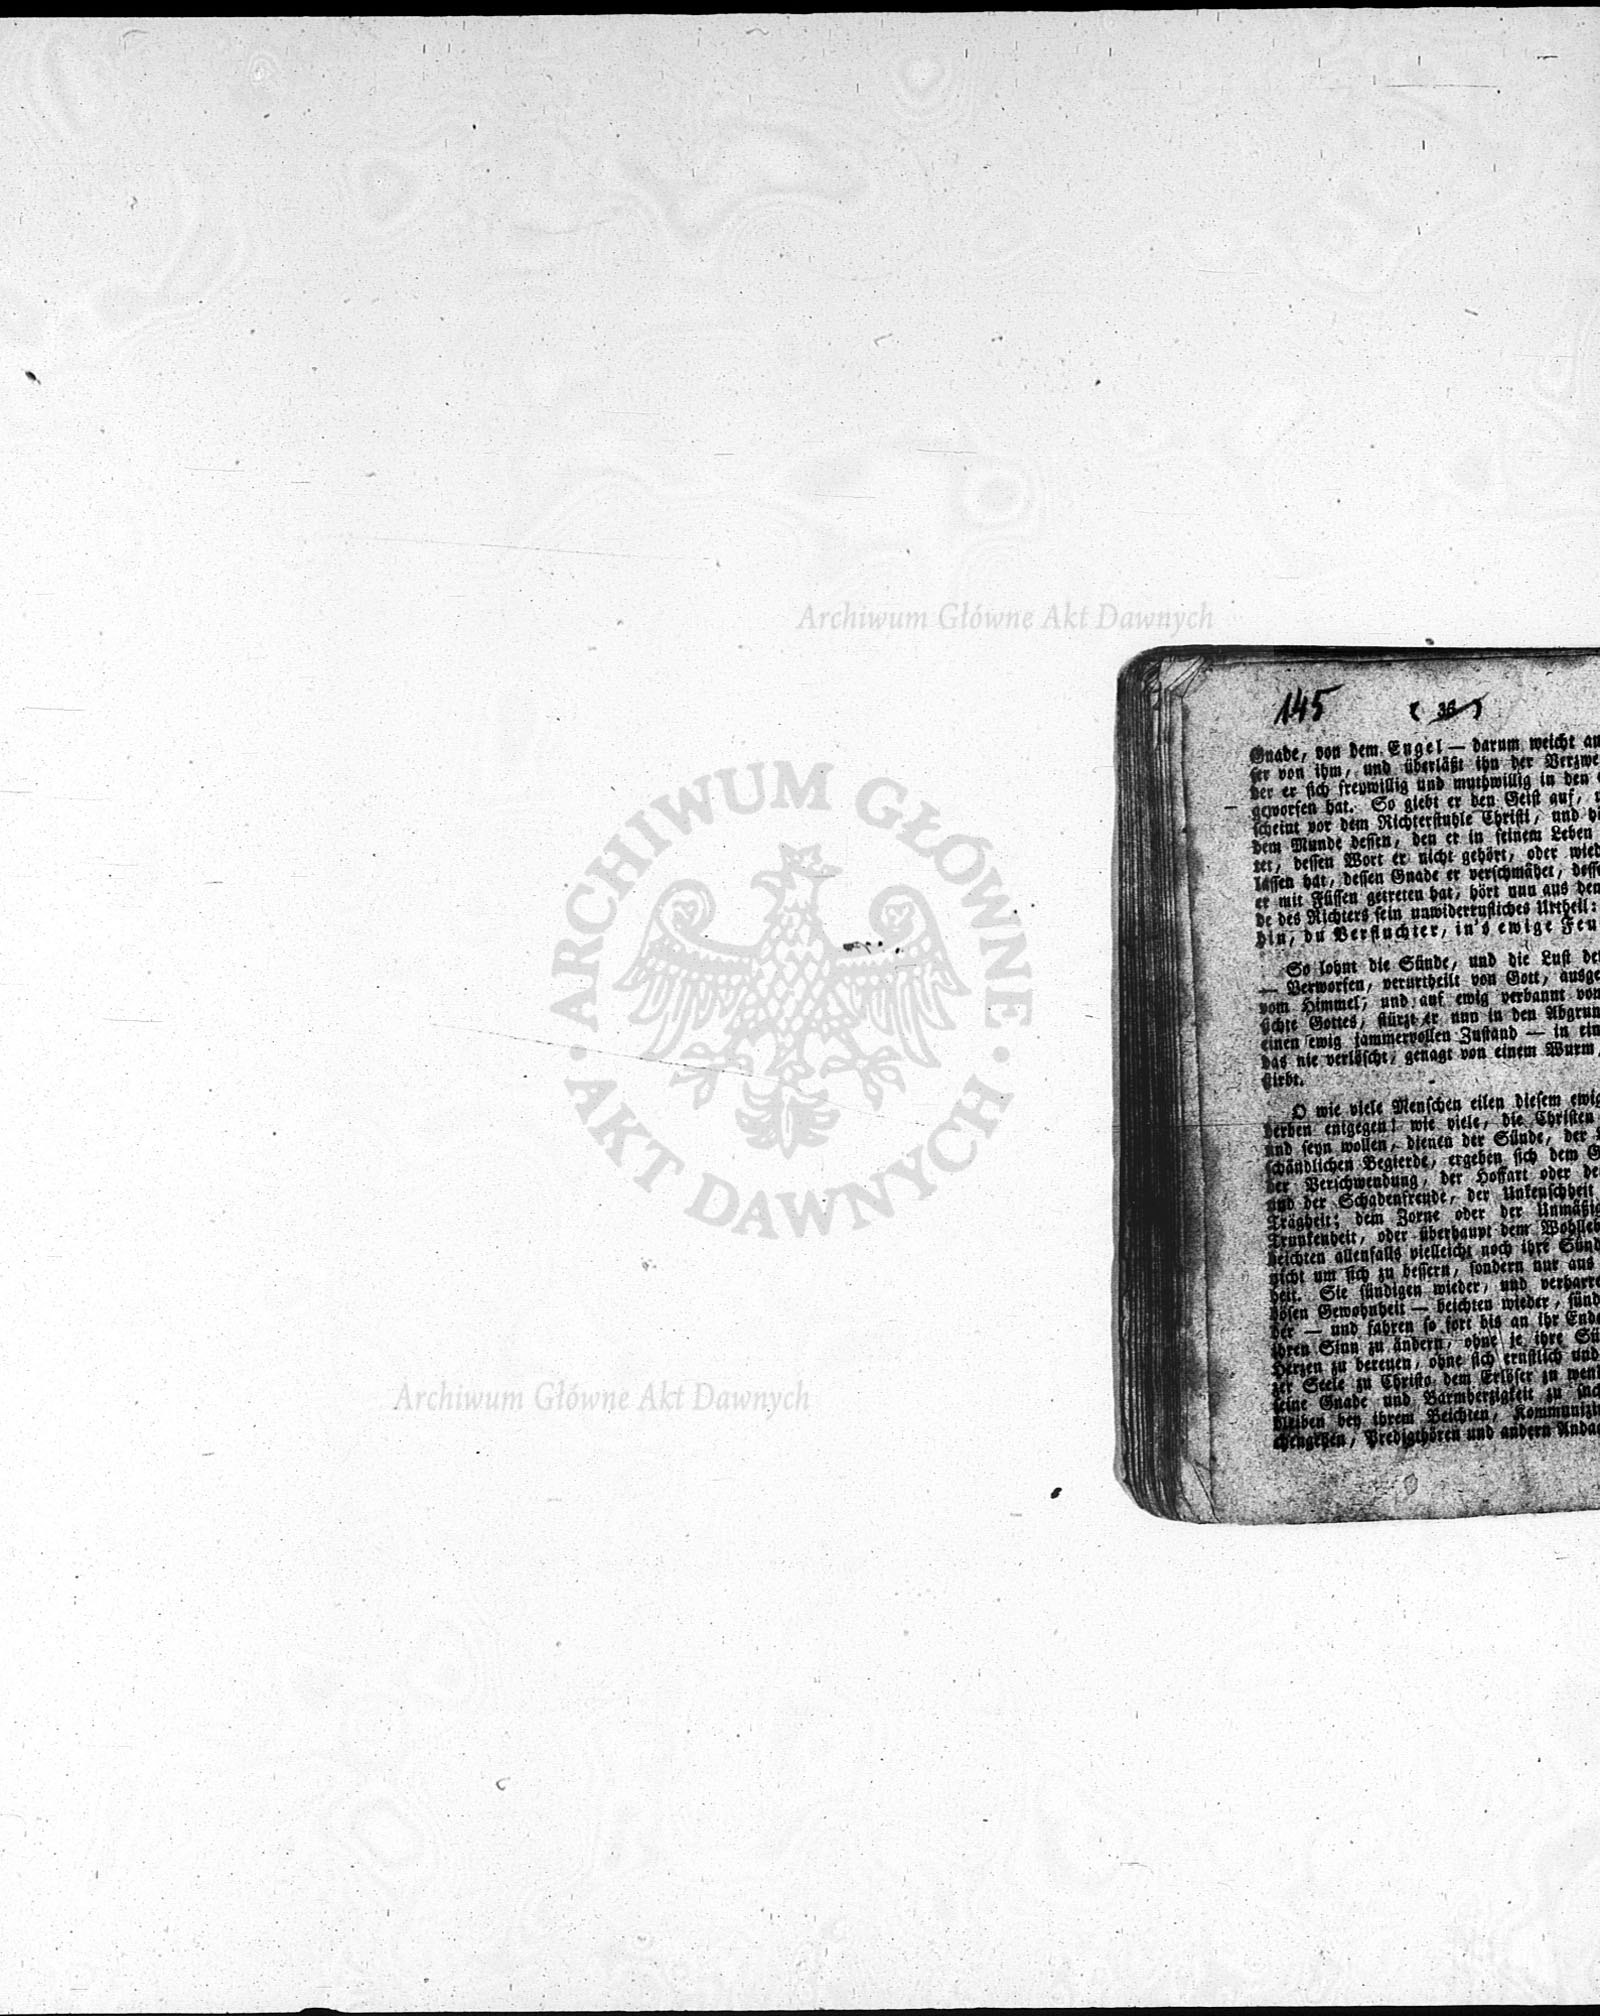 Archiwum Główne Akt Dawnych
ARCHIWUM GŁÓWNE · AKT DAWNYCH ·
145
( 36 )
Gnade, von dem Engel — darum weicht
ser von ihm, und überläßt ihn der
der er sich freywillig und muthwillig in den
geworfen hat. So giebt er den Geist auf,
scheint vor dem Richterstuhle Christi, und
dem Munde dessen, den er in seinem Leben
tet, dessen Wort er nicht gehört, oder
lassen hat, dessen Gnade er verschmähet,
er mit Füssen getreten hat, hört nun aus
de des Richters sein unwiderrufliches Urtheil:
hin, du Verfluchter, in's ewige
So lohnt die Sünde, und die Lust
— Verworfen, verurtheilt von Gott,
vom Himmel, und auf ewig verbannt
sichte Gottes, stürzt er nun in den
einen ewig jammervollen Zustand — in
das nie verlöscht, genagt von einem Wurm,
stirbt.
O wie viele Menschen eilen diesem
derben entgegen! wie viele, die Christen
und seyn wollen, dienen der Sünde, der
schändlichen Begierde, ergeben sich dem
der Verschwendung, der Hoffart oder
und der Schadenfreude, der Unkeuschheit
Trägheit; dem Zorne oder der
Trunkenheit, oder überhaupt dem
beichten allenfalls vielleicht noch ihre
nicht um sich zu bessern, sondern nur aus
heit. Sie sündigen wieder, und
bösen Gewohnheit — beichten wieder,
der — und fahren so fort bis an ihr Ende
ihren Sinn zu ändern, ohne je ihre
Herzen zu bereuen, ohne sich ernstlich und
zer Seele zu Christo dem Erlöser zu
seine Gnade und Barmherzigkeit zu
bleiben bey ihrem Beichten,
chengehen, Predigthören und andern
Archiwum Główne Akt Dawnych